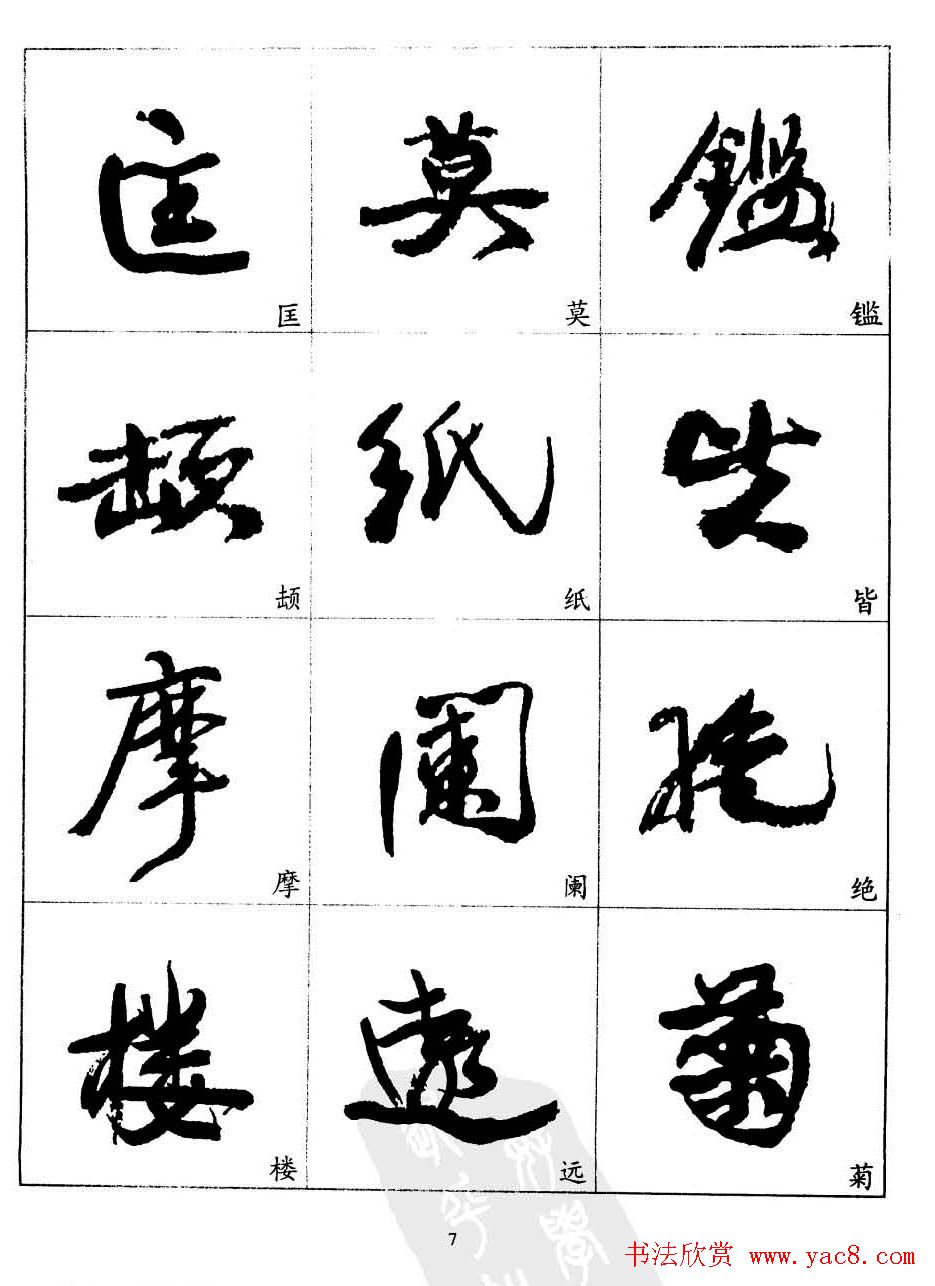 匡 莫 鑑
匡 莫 鑑
紙 皆
纸 皆
摩 闌 絶
摩 阑 绝
樓 遠 菊
楼 远 菊
7
书法欣赏 www.yac8.com